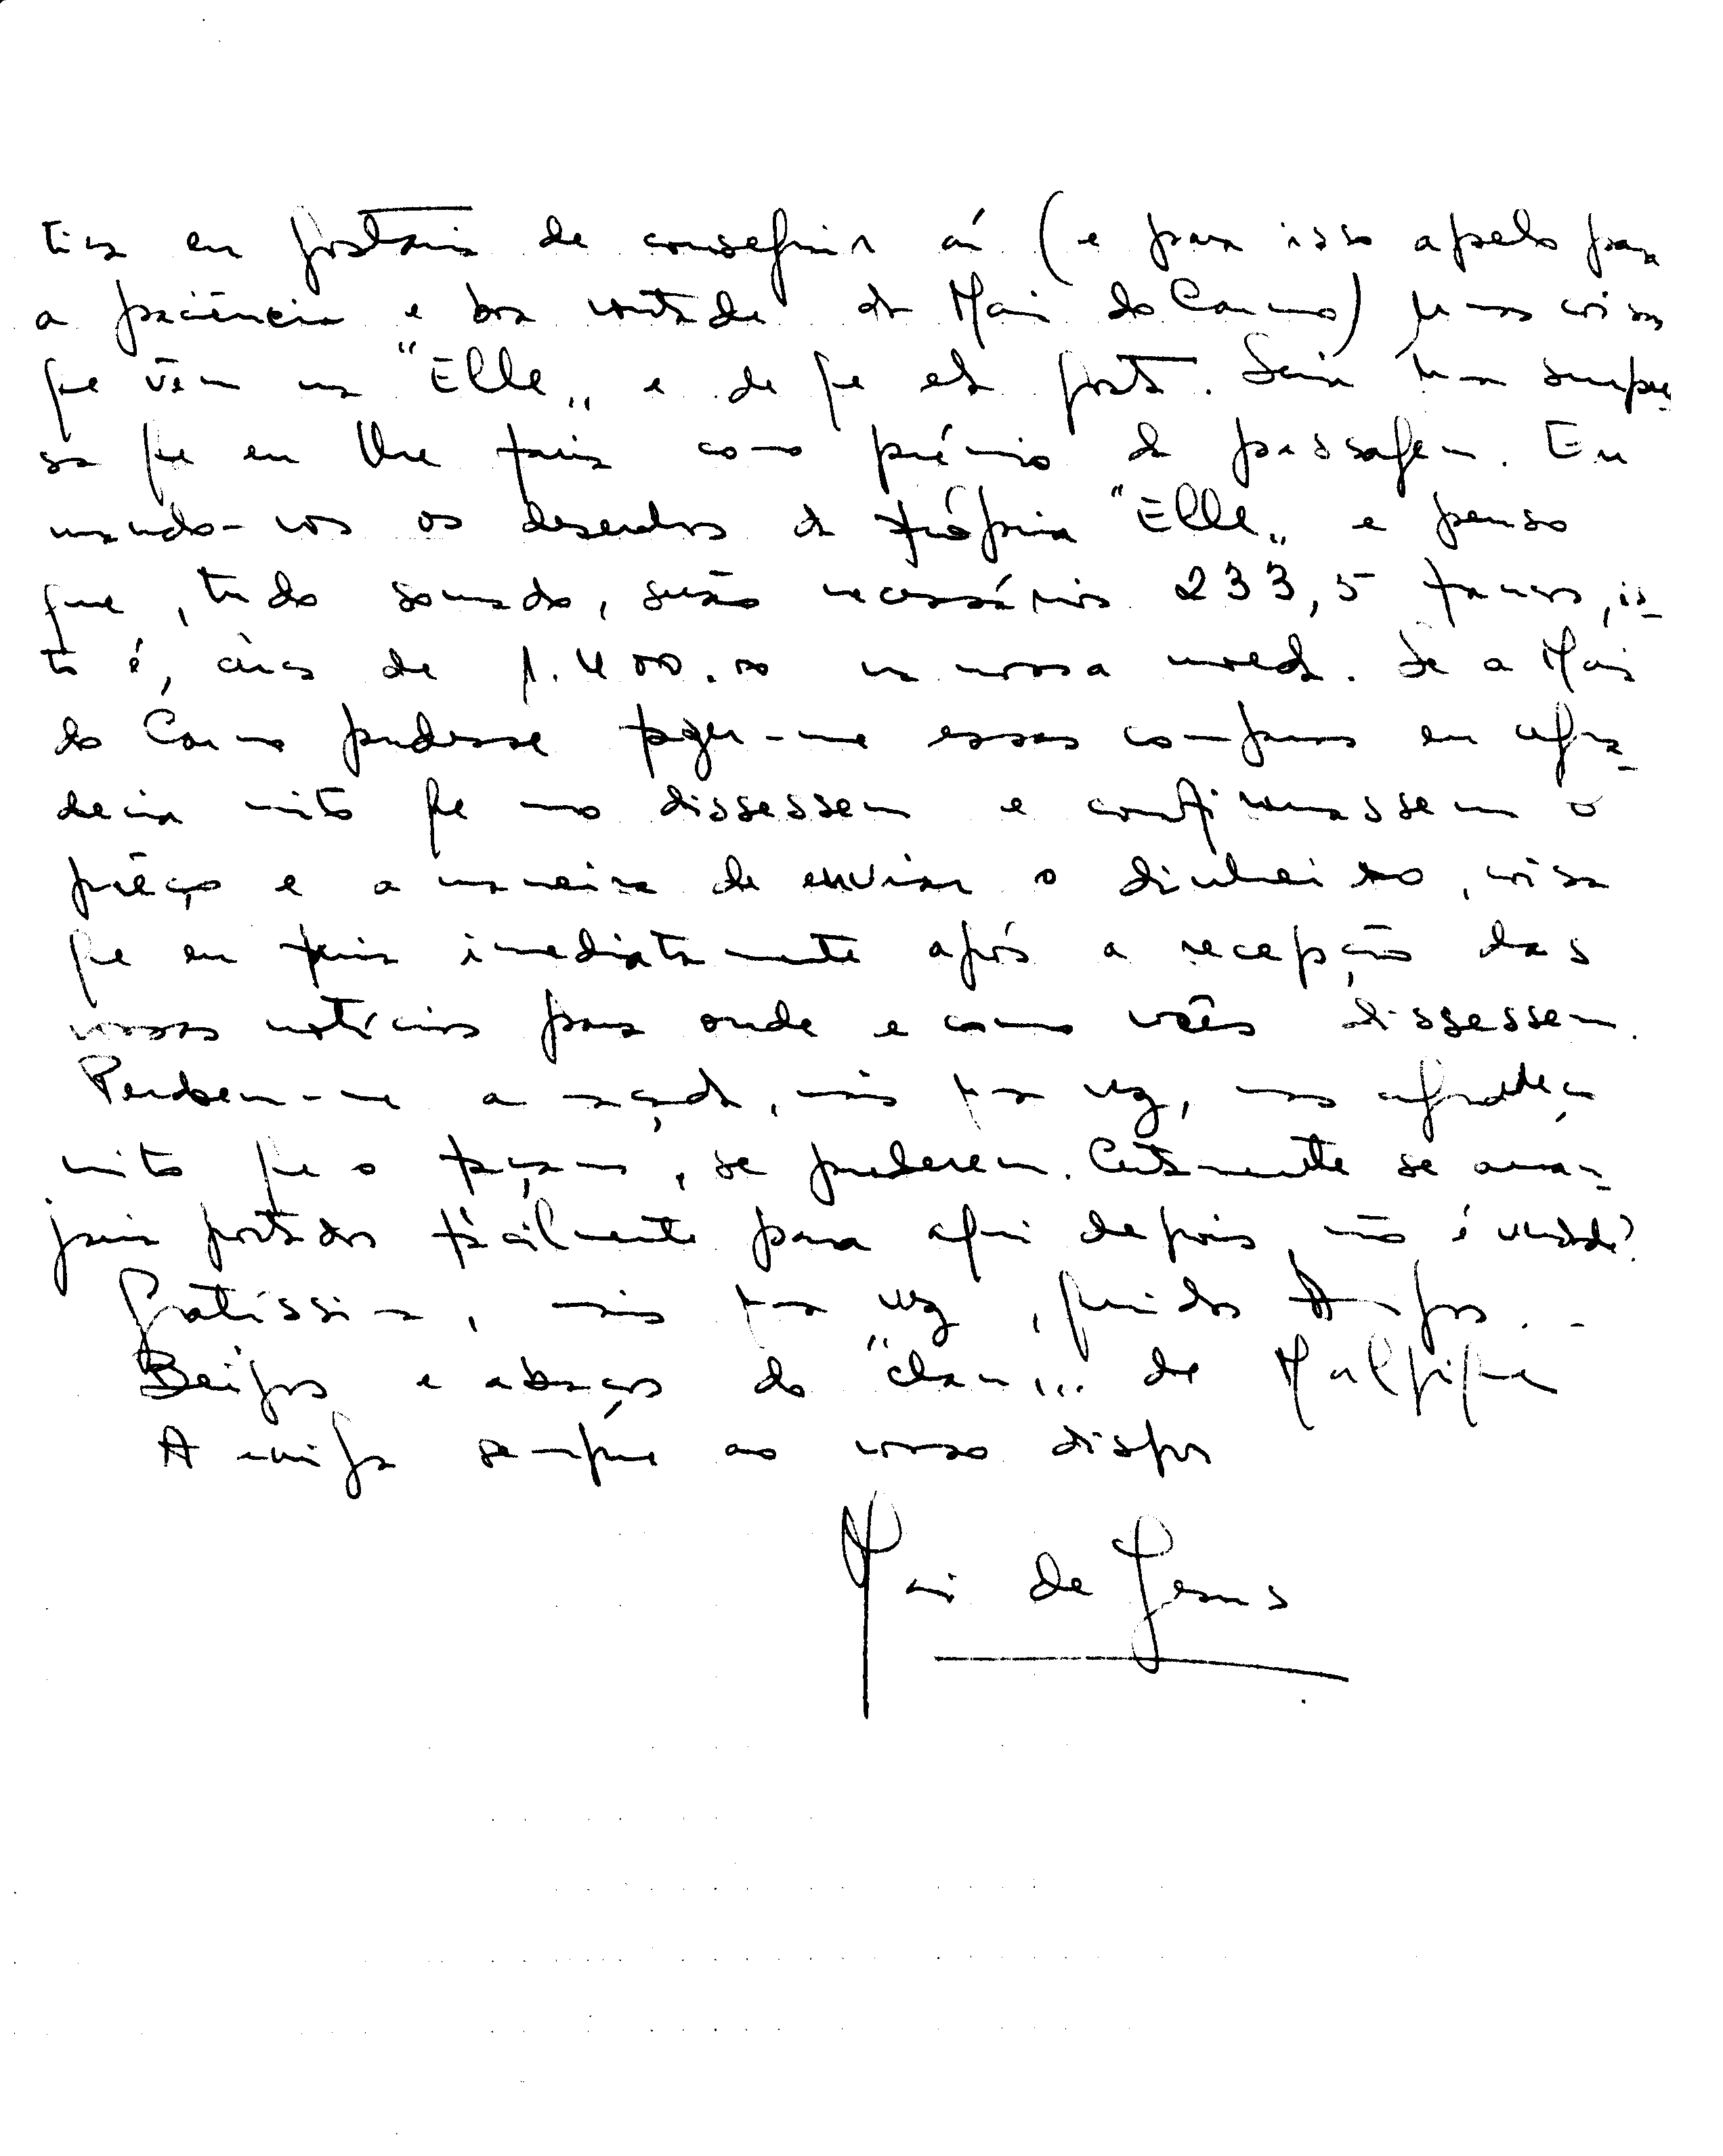 tica eu gostaria de conseguir aí (e para isso apelo para
a paciência e boa vontade da Mai do Carmo) umas coisas
que vêm na "Elle" e de que ela gosta. Seria uma surpre-
sa que eu lhe faria como prémio da passagem. Eu
mando-vos os desenhos da própria "Elle" e penso
que, tudo somado, serão necessários 233,5 francos, is-
to é, cerca de 1.400.00 na nossa moeda. Se a Mai
do Carmo pudesse fazer-me essas compras eu agra-
decia muito que mo dissessem e confirmassem o
prêço e a maneira de enviar o dinheiro, coisa
que eu faria imediatamente após a recepção das
vossas notícias para onde e como vocês dissessem.
Perdoem-me a maçada, mais uma vez, mas agradeço
muito que o façam, se puderem. Certamente se arran-
jaria portador fàcilmente para aqui depois, não é verdade?
Gratíssima, mais uma vez, queridos Amigos...
Beijos e abraços do "clan"... de Malpique
A amiga sempre ao vosso dispor
Mai de Jesus